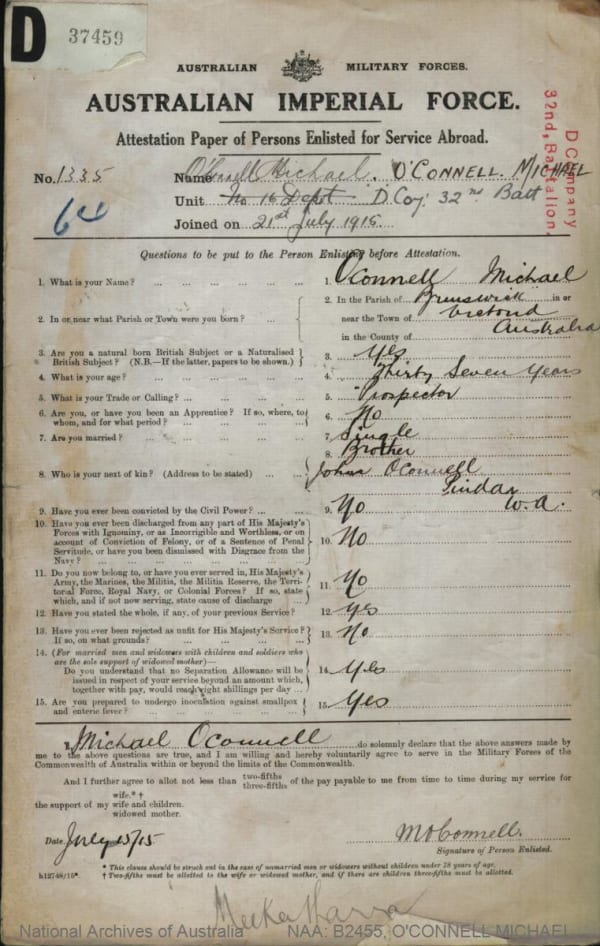 D
37459
AUSTRALIAN MILITARY FORCES.
AUSTRALIAN IMPERIAL FORCE.
Attestation Paper of Persons Enlisted for Service Abroad.
D Company
32nd, Battalion.
No. 1335 Name O'Connell Michael. O'CONNELL. MICHAEL
64
Unit No 16 Depot D. Coy: 32nd Batt
Joined on 21st July 1915
Questions to be put to the Person Enlisting before Attestation.
1. What is your Name? ... ... ... ... ... 1. OConnell Michael
2. In or near what Parish or Town were you born? ... ... 2. In the Parish of Brunswick in or
near the Town of Victoria
in the County of Australia
3. Are you a natural born British Subject or a Naturalised
British Subject? (N.B.—If the latter, papers to be shown.) 3. Yes
4. What is your age? ... ... ... ... ... 4. Thirty Seven Years
5. What is your Trade or Calling? ... ... ... ... 5. Prospector
6. Are you, or have you been an Apprentice? If so, where, to
whom, and for what period? ... ... ... ... 6. No
7. Are you married? ... ... ... ... ... 7. Single
8. Who is your next of kin? (Address to be stated) ... ... 8. Brother
John OConnell
Pindar
W.A.
9. Have you ever been convicted by the Civil Power? ... ... 9. No
10. Have you ever been discharged from any part of His Majesty's
Forces with Ignominy, or as Incorrigible and Worthless, or on
account of Conviction of Felony, or of a Sentence of Penal
Servitude, or have you been dismissed with Disgrace from the
Navy? ... ... ... ... ... 10. No
11. Do you now belong to, or have you ever served in, His Majesty's
Army, the Marines, the Militia, the Militia Reserve, the Terri-
torial Force, Royal Navy, or Colonial Forces? If so, state
which, and if not now serving, state cause of discharge ... 11. No
12. Have you stated the whole, if any, of your previous Service? 12. Yes
13. Have you ever been rejected as unfit for His Majesty's Service?
If so, on what grounds? ... ... ... ... 13. No
14. (For married men and widowers with children and soldiers who
are the sole support of widowed mother)—
Do you understand that no Separation Allowance will be
issued in respect of your service beyond an amount which,
together with pay, would reach eight shillings per day ... 14. Yes
15. Are you prepared to undergo inoculation against smallpox
and enteric fever? ... ... ... ... ... 15. Yes
I, Michael Oconnell do solemnly declare that the above answers made by
me to the above questions are true, and I am willing and hereby voluntarily agree to serve in the Military Forces of the
Commonwealth of Australia within or beyond the limits of the Commonwealth.
And I further agree to allot not less than two-fifths
three-fifths of the pay payable to me from time to time during my service for
wife.*†
the support of my wife and children.
widowed mother.
Date July 15/15
M OConnell.
Signature of Person Enlisted.
* This clause should be struck out in the case of unmarried men or widowers without children under 18 years of age.
h12748/15*. † Two-fifths must be allotted to the wife or widowed mother, and if there are children three-fifths must be allotted.
Meekatharra
National Archives of Australia NAA: B2455, O'CONNELL MICHAEL